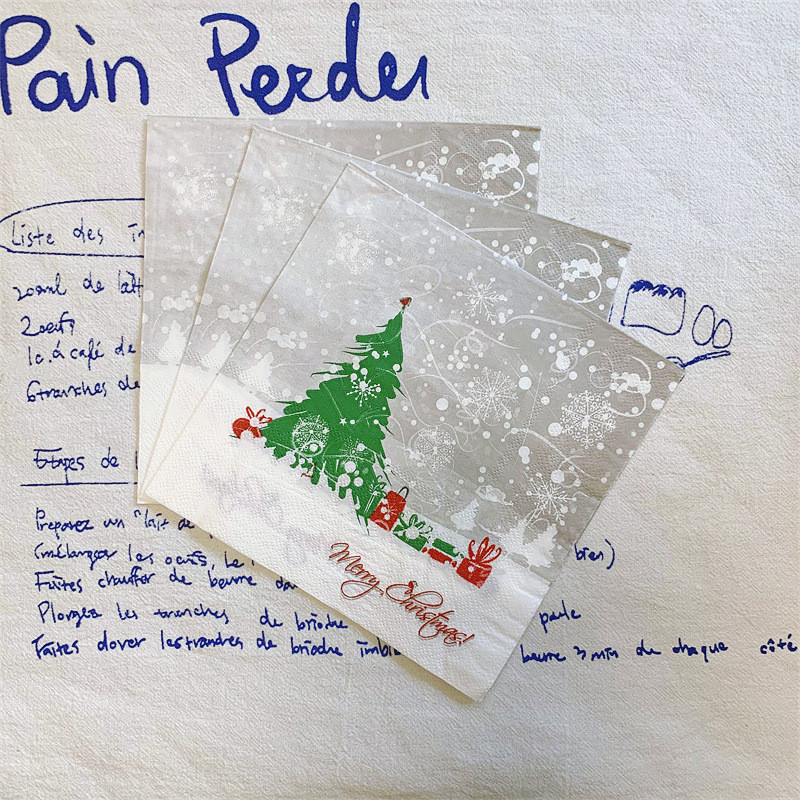 Pain Perdu
Liste des in
200ml de lait
2 oeufs
1c. à café de
6 tranches de
Etapes de
Preparez un "lait de
(mélanger les oeufs, le bien)
Faites chauffer de beurre
Plongez les tranches de brioche
Faites dorer les tranches de brioche imbi beurre 3 min de chaque côté
Merry Christmas!